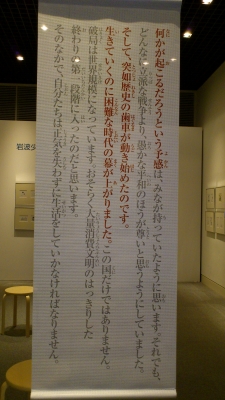 何かが起こるだろうという予感は、みなが持っていたように思います。それでも、
どんなに立派な戦争より、愚かな平和のほうが尊いと思うようにしていました。
そして、突如歴史の歯車が動き始めたのです。
生きていくのに困難な時代の幕が上がりました。この国だけではありません。
破局は世界規模になっています。おそらく大量消費文明のはっきりした
終わりの第一段階に入ったのだと思います。
そのなかで、自分たちは正気を失わずに生活をしていかなければなりません。
岩波少